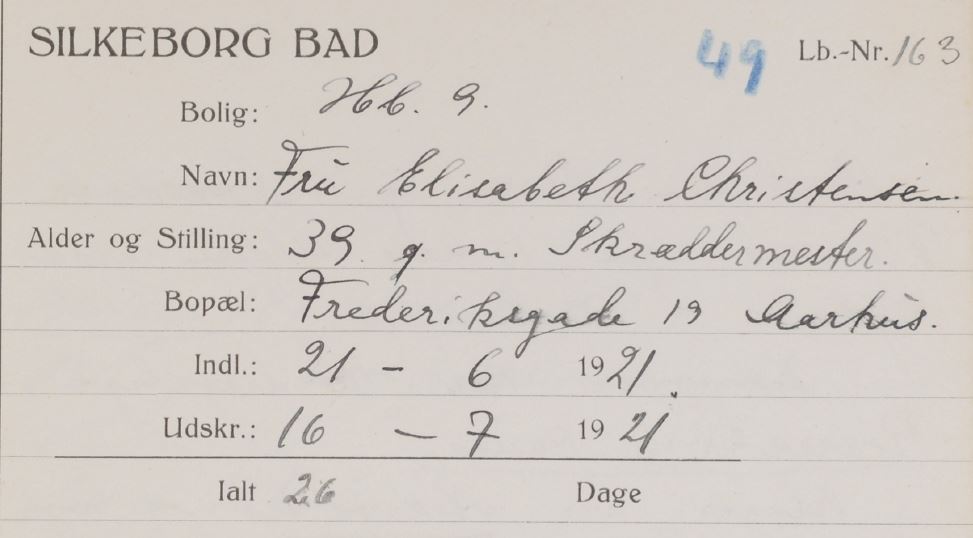 SILKEBORG BAD 49 Lb.-Nr. 163
Bolig: Hb. 9.
Navn: Fru Elisabeth Christensen.
Alder og Stilling: 39 g. m. Skræddermester.
Bopæl: Frederiksgade 19 Aarhus.
Indl.: 21 - 6 1921.
Udskr.: 16 - 7 1921
Ialt 26 Dage